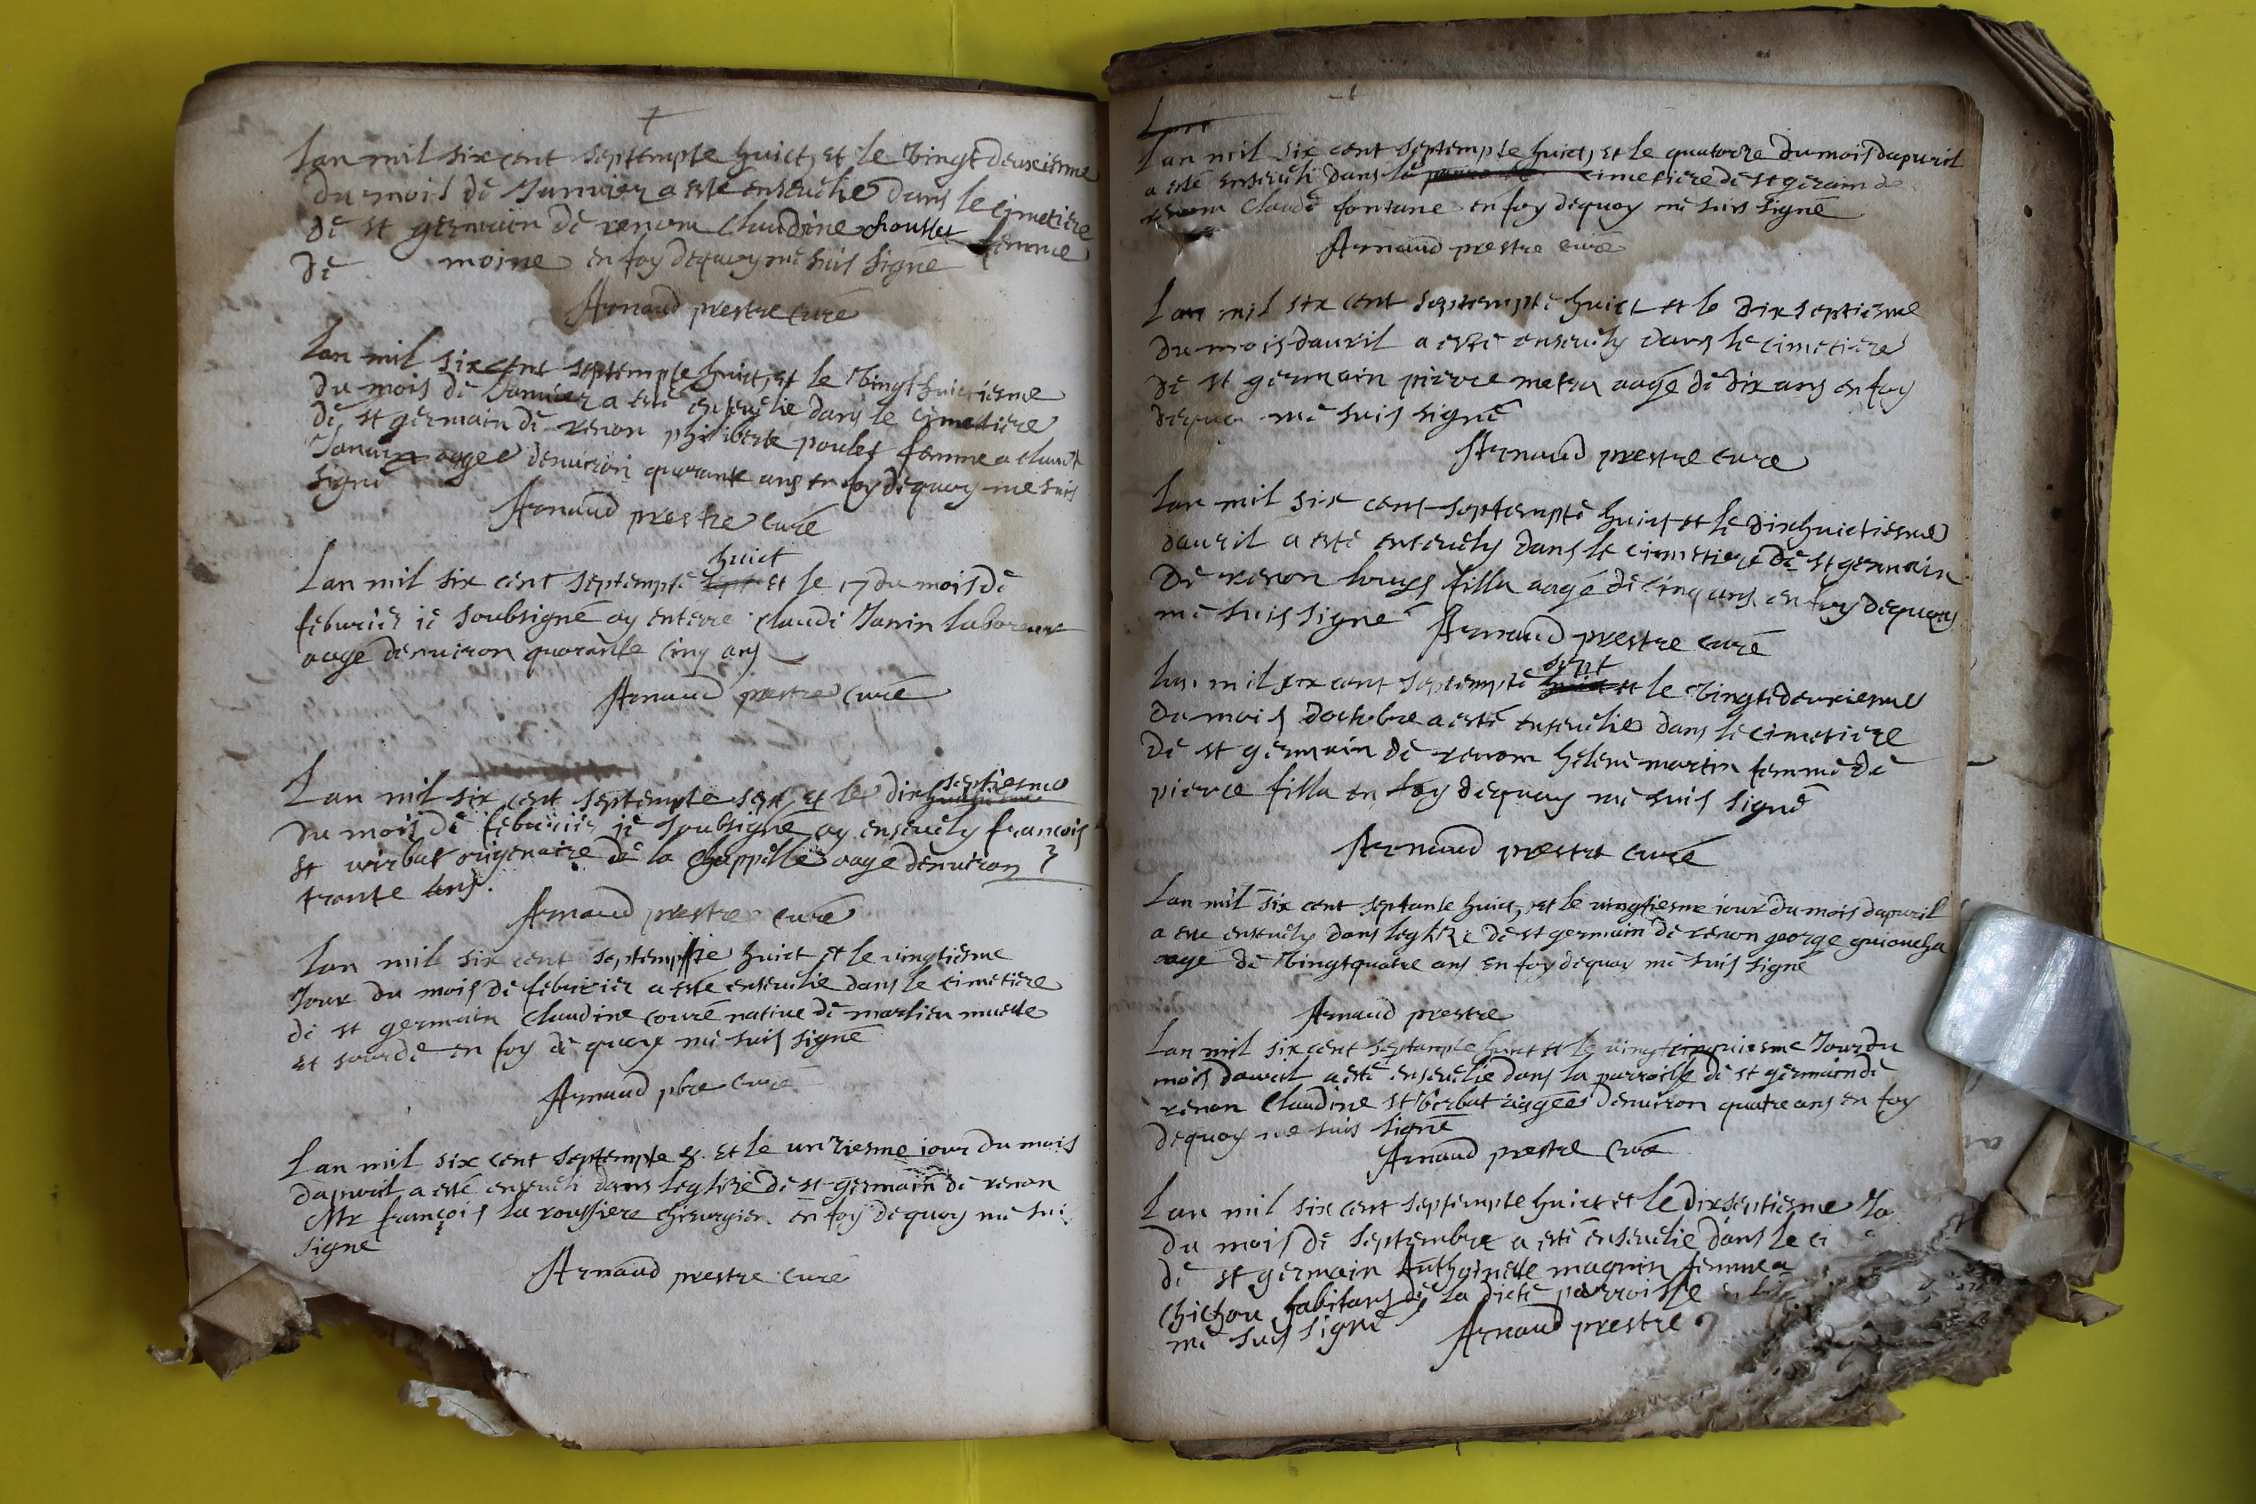 Lan mil six cent septempte huict, et le vingt deuxiesme
du mois de Janvier a esté enseuelie dans le cimetiere
de st germain de renom Claudine chousset femme
de moine en foy dequoy me suis signe
Arnaud prestre curé
Lan mil six cent septempte huict, et le vingt huictiesme
du mois de Januier a esté enseuelie dans le cimetiere
de st germain de renon philiberte poulet femme a claude
Janin aagee denuiron quarante ans en foy dequoy me suis
signé
Arnaud prestre curé
huict
Lan mil six cent septempte sept et le 17 du mois de
feburier ie soubsigné ay enterré claude Janin laboreur
aagé denuiron quarante cinq ans
Arnaud prestre curé
septiesme
Lan mil six cent septempte sept, et le dix
du mois de feburier ie soubsigné ay enseuely francois
st virbat originaire de la chappelle aage denuiron
trante ans.
Arnaud prestre curé
Lan mil six cent septempte huict et le vingtiesme
Jour du mois de feburier a esté enseuelie dans le cimetiere
de st germain Claudine couré natiue de marlieu muette
et sourde en foy de quoy me suis signé
Arnaud pbre curé
Lan mil six cent septempte 8. et le unziesme iour du mois
dapuril a esté enseueli dans leglise de st germain de renon
Mr françois la roussiere chirurgien en foy de quoy me sui
signé
Arnaud prestre curé
Lan
Lan mil six cent septempte huict, et le quatorze du mois dapuril
a esté enseueli dans le cimetiere de st gerain de
renom Claude fontane en foy dequoy me suis signé
Arnaud prestre curé
Lan mil six cent septempte huict et le dix septiesme
du mois dauril a esté enseuely dans le cimetiere
de st germain pierre metra aagé de dix ans en foy
dequoy me suis signé
Arnaud prestre cure
Lan mil six cent septempte huict et le dixhuictiesme
dauril a esté enseuely dans le cimetiere de st germain
de renon louys filla aagé de cinq ans en foy dequoy
me suis signé Arnaud prestre curé
sept
Lan mil six cent septempte huict et le vingtdeuxiesme
du mois doctobre a esté enseuelie dans le cimetiere
de st germain de renom helene martin femme de
pierre filla en foy dequoy me suis signé
Arnaud prestre curé
Lan mil six cent septante huict, et le vingtiesme iour du mois dapuril
a esté enseuely dans leglise de st germain de renon george guioncha
aage de vingtquatre ans en foy dequoy me suis signe
Arnaud prestre
Lan mil six cent septempte huict et le vingtcinquiesme Jour du
mois dauril a esté enseuelie dans la parroisse de st germain de
renon Claudine st virbat aagees denuiron quatre ans en foy
dequoy me suis signé
Arnaud prestre curé
Lan mil six cent septempte huict et le dixseptiesme Jo
du mois de septembre a esté enseuelie dans le ci
de st germain Anthoinette magnin femme a
chichou habitans de la dicte parroisse en
me suis signé Arnaud prestre